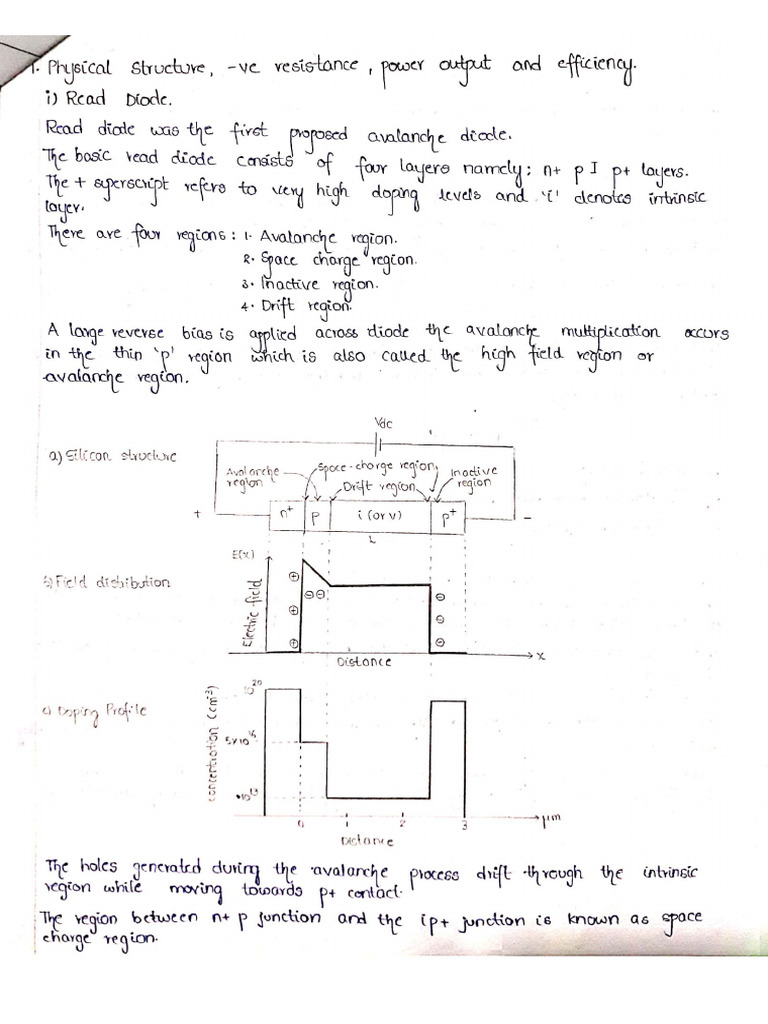 1. Physical structure, -ve resistance, power output and efficiency.
i) Read Diode.
Read diode was the first proposed avalanche diode.
The basic read diode consists of four layers namely: n+ p I p+ layers.
The + superscript refers to very high doping levels and 'i' denotes intrinsic
layer.
There are four regions: 1. Avalanche region.
2. Space charge region.
3. Inactive region.
4. Drift region.
A large reverse bias is applied across diode the avalanche multiplication occurs
in the thin 'p' region which is also called the high field region or
avalanche region.
Vdc
a) Silicon structure
Avalanche region
Space-charge region
Drift region
Inactive region
+ n+ p i (or v) p+ -
L
E(x)
b) Field distribution
Electric field
Distance
x
c) Doping Profile
concentration (cm-3)
10^20
5x10^16
10^13
0 1 2 3
μm
Distance
The holes generated during the avalanche process drift through the intrinsic
region while moving towards p+ contact.
The region between n+ p junction and the ip+ junction is known as space
charge region.